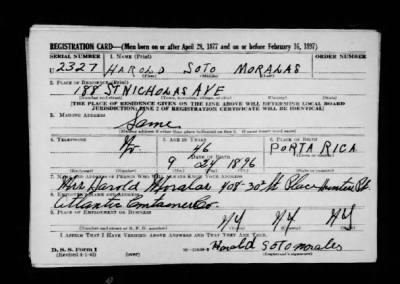 REGISTRATION CARD—(Men born on or after April 28, 1877 and on or before February 16, 1897)
SERIAL NUMBER 1. NAME (Print) ORDER NUMBER
U 2327 HAROLD SOTO MORALAS
(First) (Middle) (Last)
2. PLACE OF RESIDENCE (Print)
188 ST NICHOLAS AVE
(Number and street) (Town, township, village, or city) (County) (State)
[THE PLACE OF RESIDENCE GIVEN ON THE LINE ABOVE WILL DETERMINE LOCAL BOARD
JURISDICTION; LINE 2 OF REGISTRATION CERTIFICATE WILL BE IDENTICAL]
3. MAILING ADDRESS
Same
[Mailing address if other than place indicated on line 2. If same insert word same]
4. TELEPHONE 5. AGE IN YEARS 6. PLACE OF BIRTH
46 PORTA RICA
DATE OF BIRTH
9 24 1896
7. NAME AND ADDRESS OF PERSON WHO WILL ALWAYS KNOW YOUR ADDRESS
Mrs Harold Moralas 408-30th St Place
8. EMPLOYER'S NAME AND ADDRESS
Atlantic Container Co.
9. PLACE OF EMPLOYMENT OR BUSINESS
NY NY NY
(Number and street or R. F. D. number) (Town) (County) (State)
I AFFIRM THAT I HAVE VERIFIED ABOVE ANSWERS AND THAT THEY ARE TRUE.
D. S. S. Form 1
(Revised 4-1-42)
Harold SOTO morales
(Registrant's signature)